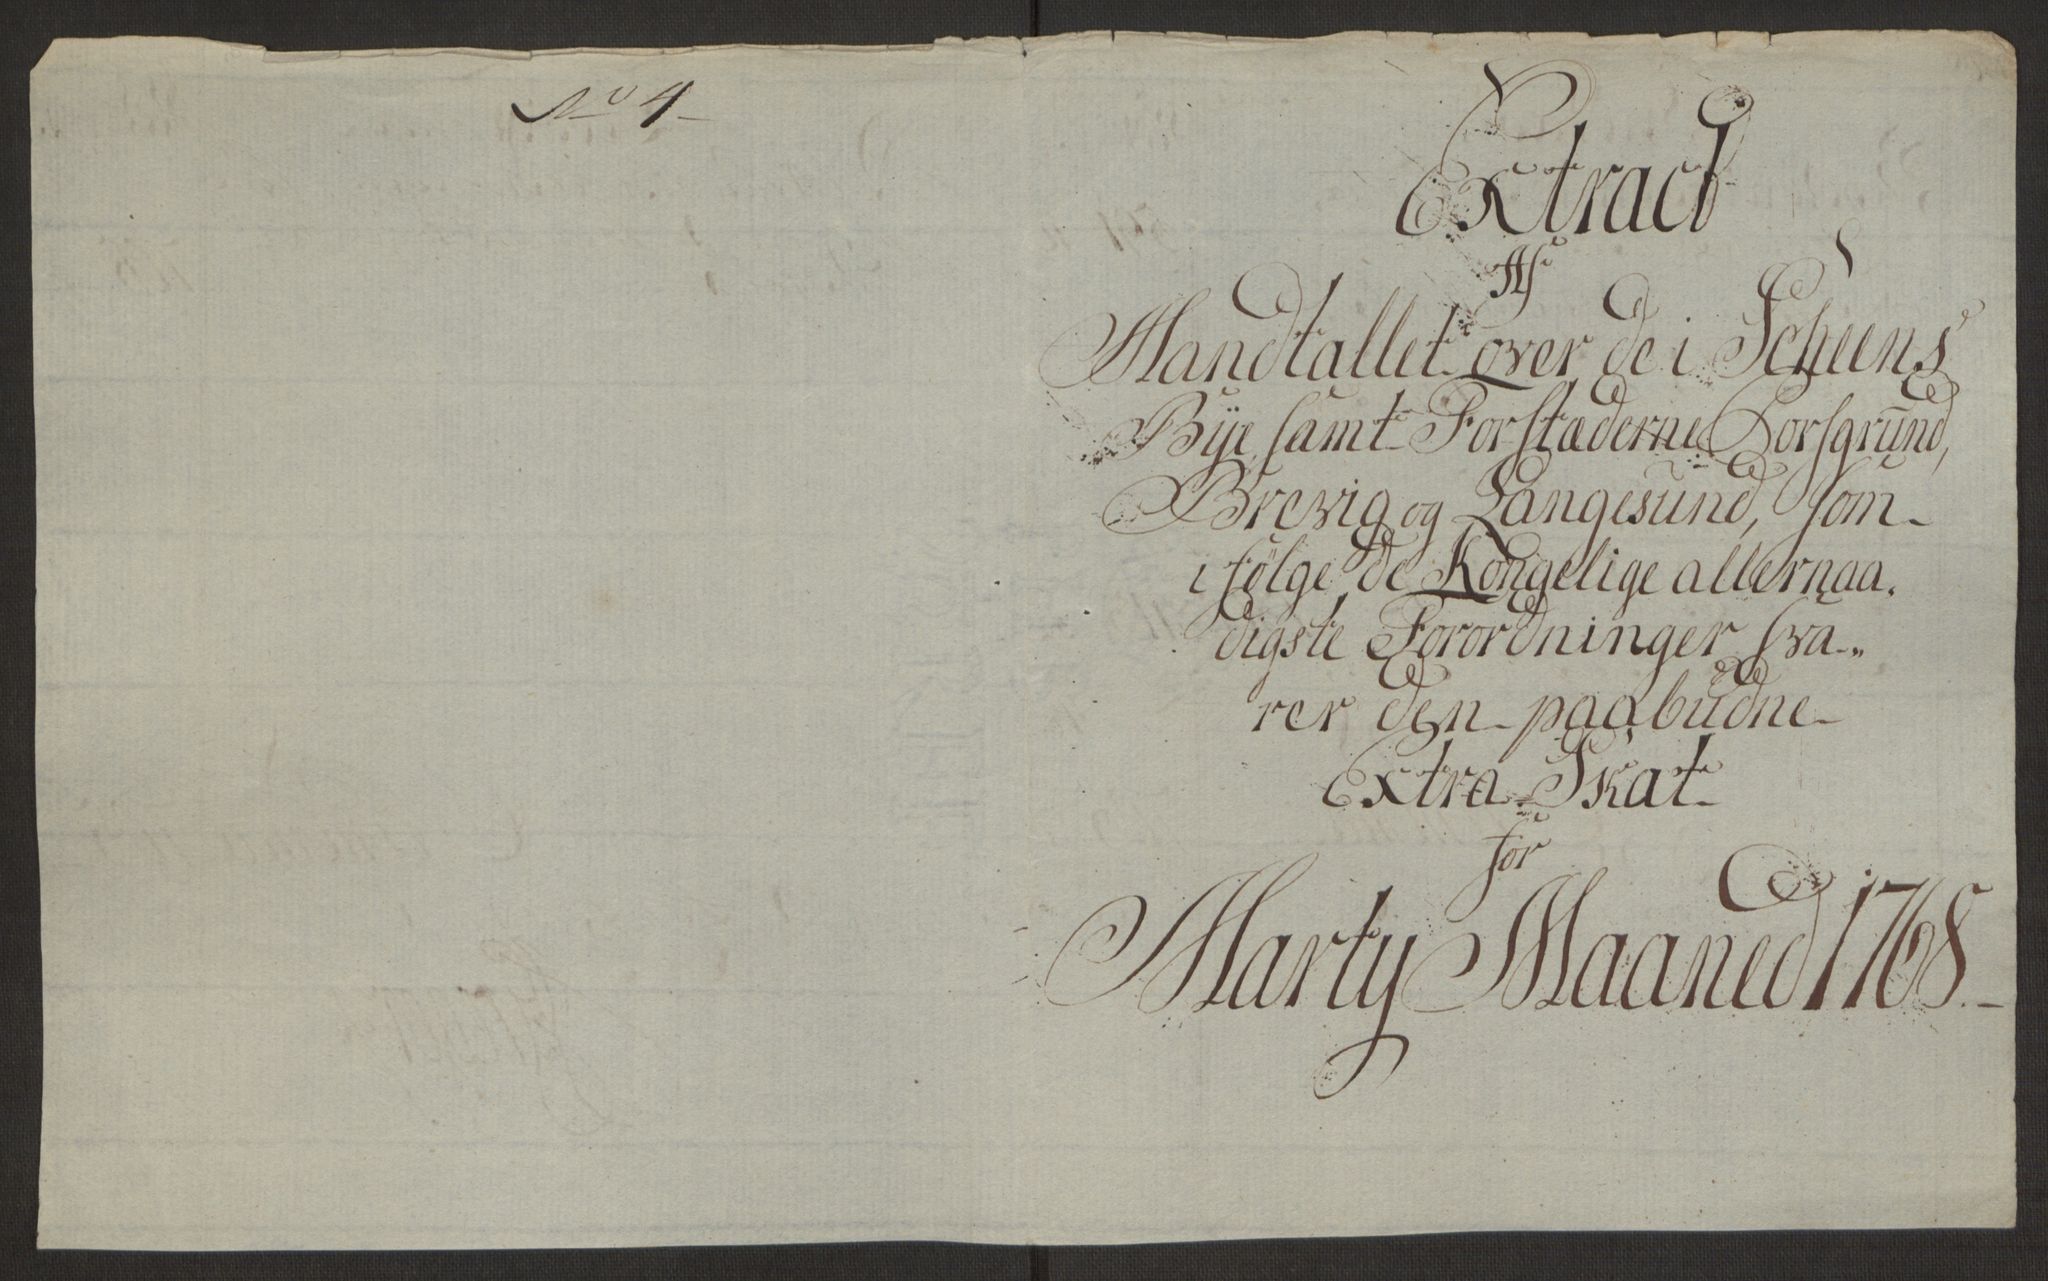 No 4
Extract
Af
Mandtallet over de i Scheens
Bÿe samt Forstæderne Porsgrund,
Brevig og Langesund, som
i følge de Kongelige allernaa-
digste Forordninger sva-
rer den paabudne
Extra Skat
for
Marty Maaned 1768.